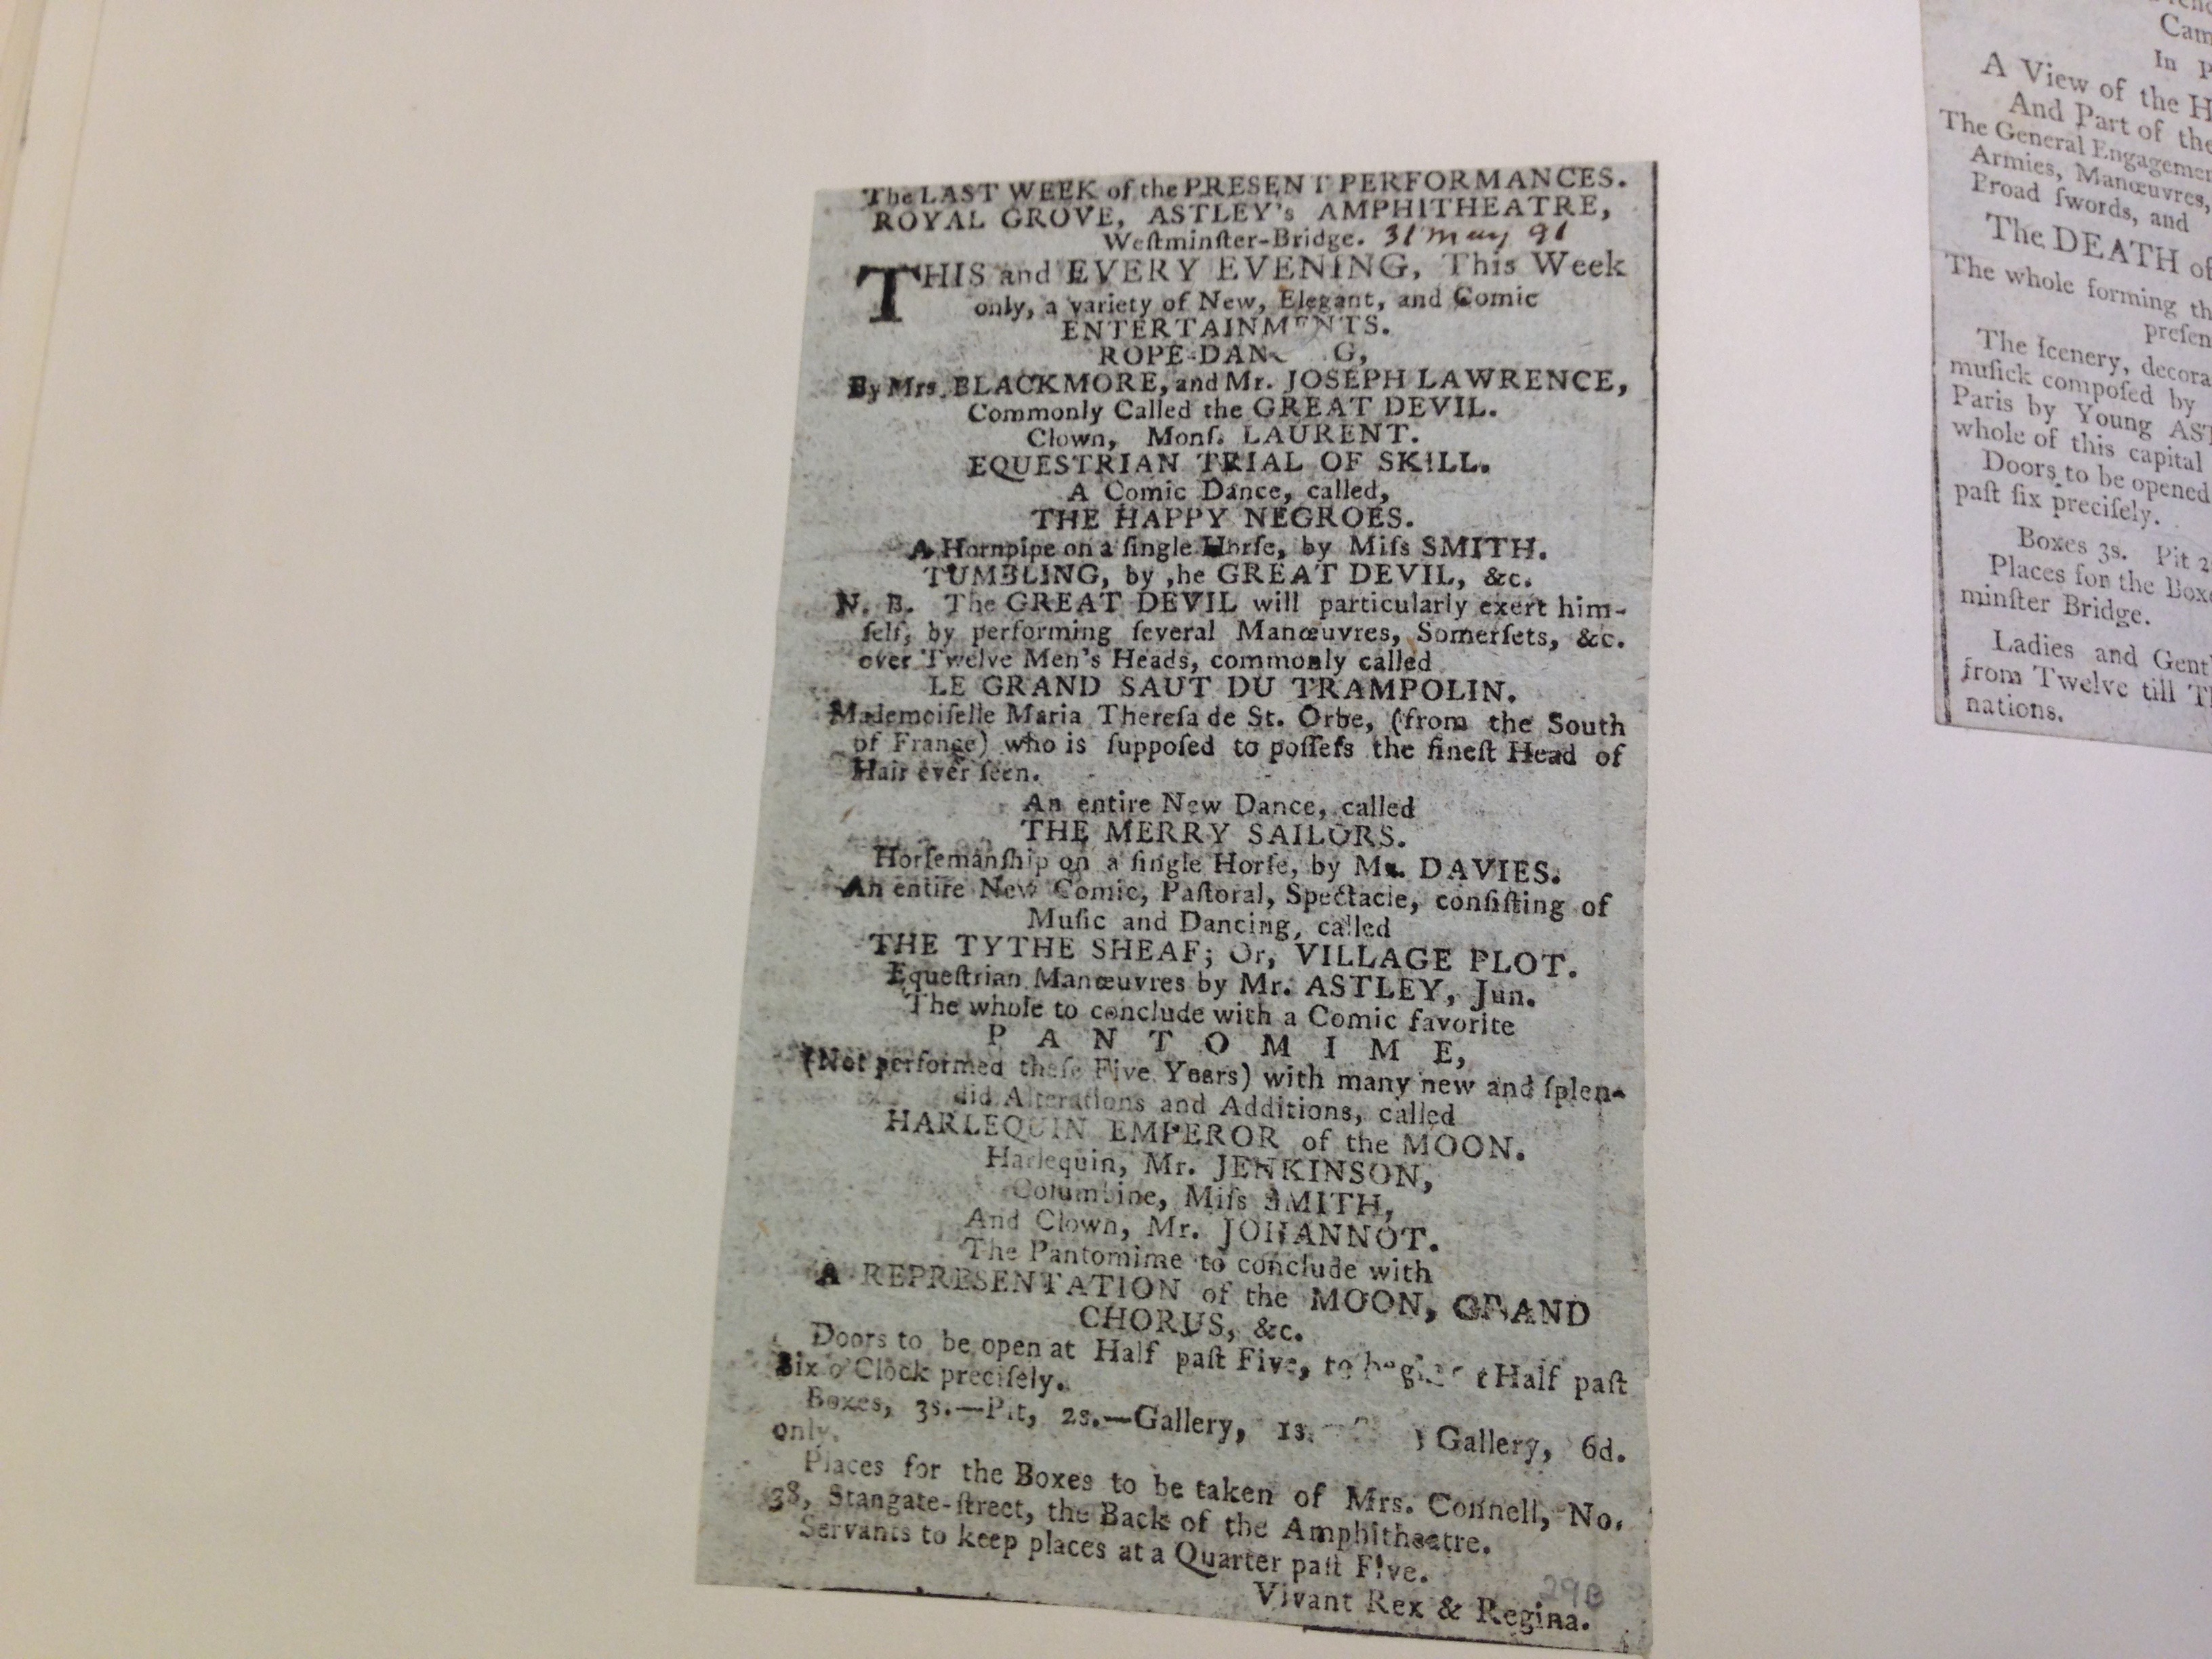 The LAST WEEK of the PRESENT PERFORMANCES.
ROYAL GROVE, ASTLEY's AMPHITHEATRE,
Weſtminſter-Bridge. 31 May 91
THIS and EVERY EVENING, This Week
only, a variety of New, Elegant, and Comic
ENTERTAINMENTS.
ROPE-DAN G,
By Mrs. BLACKMORE, and Mr. JOSEPH LAWRENCE,
Commonly Called the GREAT DEVIL.
Clown, Monſ. LAURENT.
EQUESTRIAN TRIAL OF SKILL.
A Comic Dance, called,
THE HAPPY NEGROES.
A Hornpipe on a ſingle Horſe, by Miſs SMITH.
TUMBLING, by ,he GREAT DEVIL, &c.
N. B. The GREAT DEVIL will particularly exert him-
ſelf, by performing ſeveral Manœuvres, Somerſets, &c.
over Twelve Men's Heads, commonly called
LE GRAND SAUT DU TRAMPOLIN.
Mademoiſelle Maria Thereſa de St. Orbe, (from the South
of France) who is ſuppoſed to poſſeſs the fineſt Head of
Hair ever ſeen.
An entire New Dance, called
THE MERRY SAILORS.
Horſemanſhip on a ſingle Horſe, by Mr. DAVIES.
An entire New Comic, Paſtoral, Spectacle, conſiſting of
Muſic and Dancing, called
THE TYTHE SHEAF; Or, VILLAGE PLOT.
Equeſtrian Manœuvres by Mr. ASTLEY, Jun.
The whole to conclude with a Comic favorite
P A N T O M I M E,
(Not performed theſe Five Years) with many new and ſplen-
did Alterations and Additions, called
HARLEQUIN EMPEROR of the MOON.
Harlequin, Mr. JENKINSON,
Columbine, Miſs SMITH,
And Clown, Mr. JOHANNOT.
The Pantomime to conclude with
A REPRESENTATION of the MOON, GRAND
CHORUS, &c.
Doors to be open at Half paſt Five, to begin at Half paſt
Six o'Clock preciſely.
Boxes, 3s.—Pit, 2s.—Gallery, 1s. Gallery, 6d.
only.
Places for the Boxes to be taken of Mrs. Connell, No.
38, Stangate-ſtreet, the Back of the Amphitheatre.
Servants to keep places at a Quarter paſt Five.
Vivant Rex & Regina.
29B
Cam
In P
A View of the H
And Part of the
The General Engagemen
Armies, Manœuvres,
Broad ſwords, and
The DEATH of
The whole forming th
preſen
The ſcenery, decora
muſick compoſed by
Paris by Young AST
whole of this capital
Doors to be opened
paſt ſix preciſely.
Boxes 3s. Pit 2
Places for the Boxe
minſter Bridge.
Ladies and Gentl
from Twelve till Th
nations.